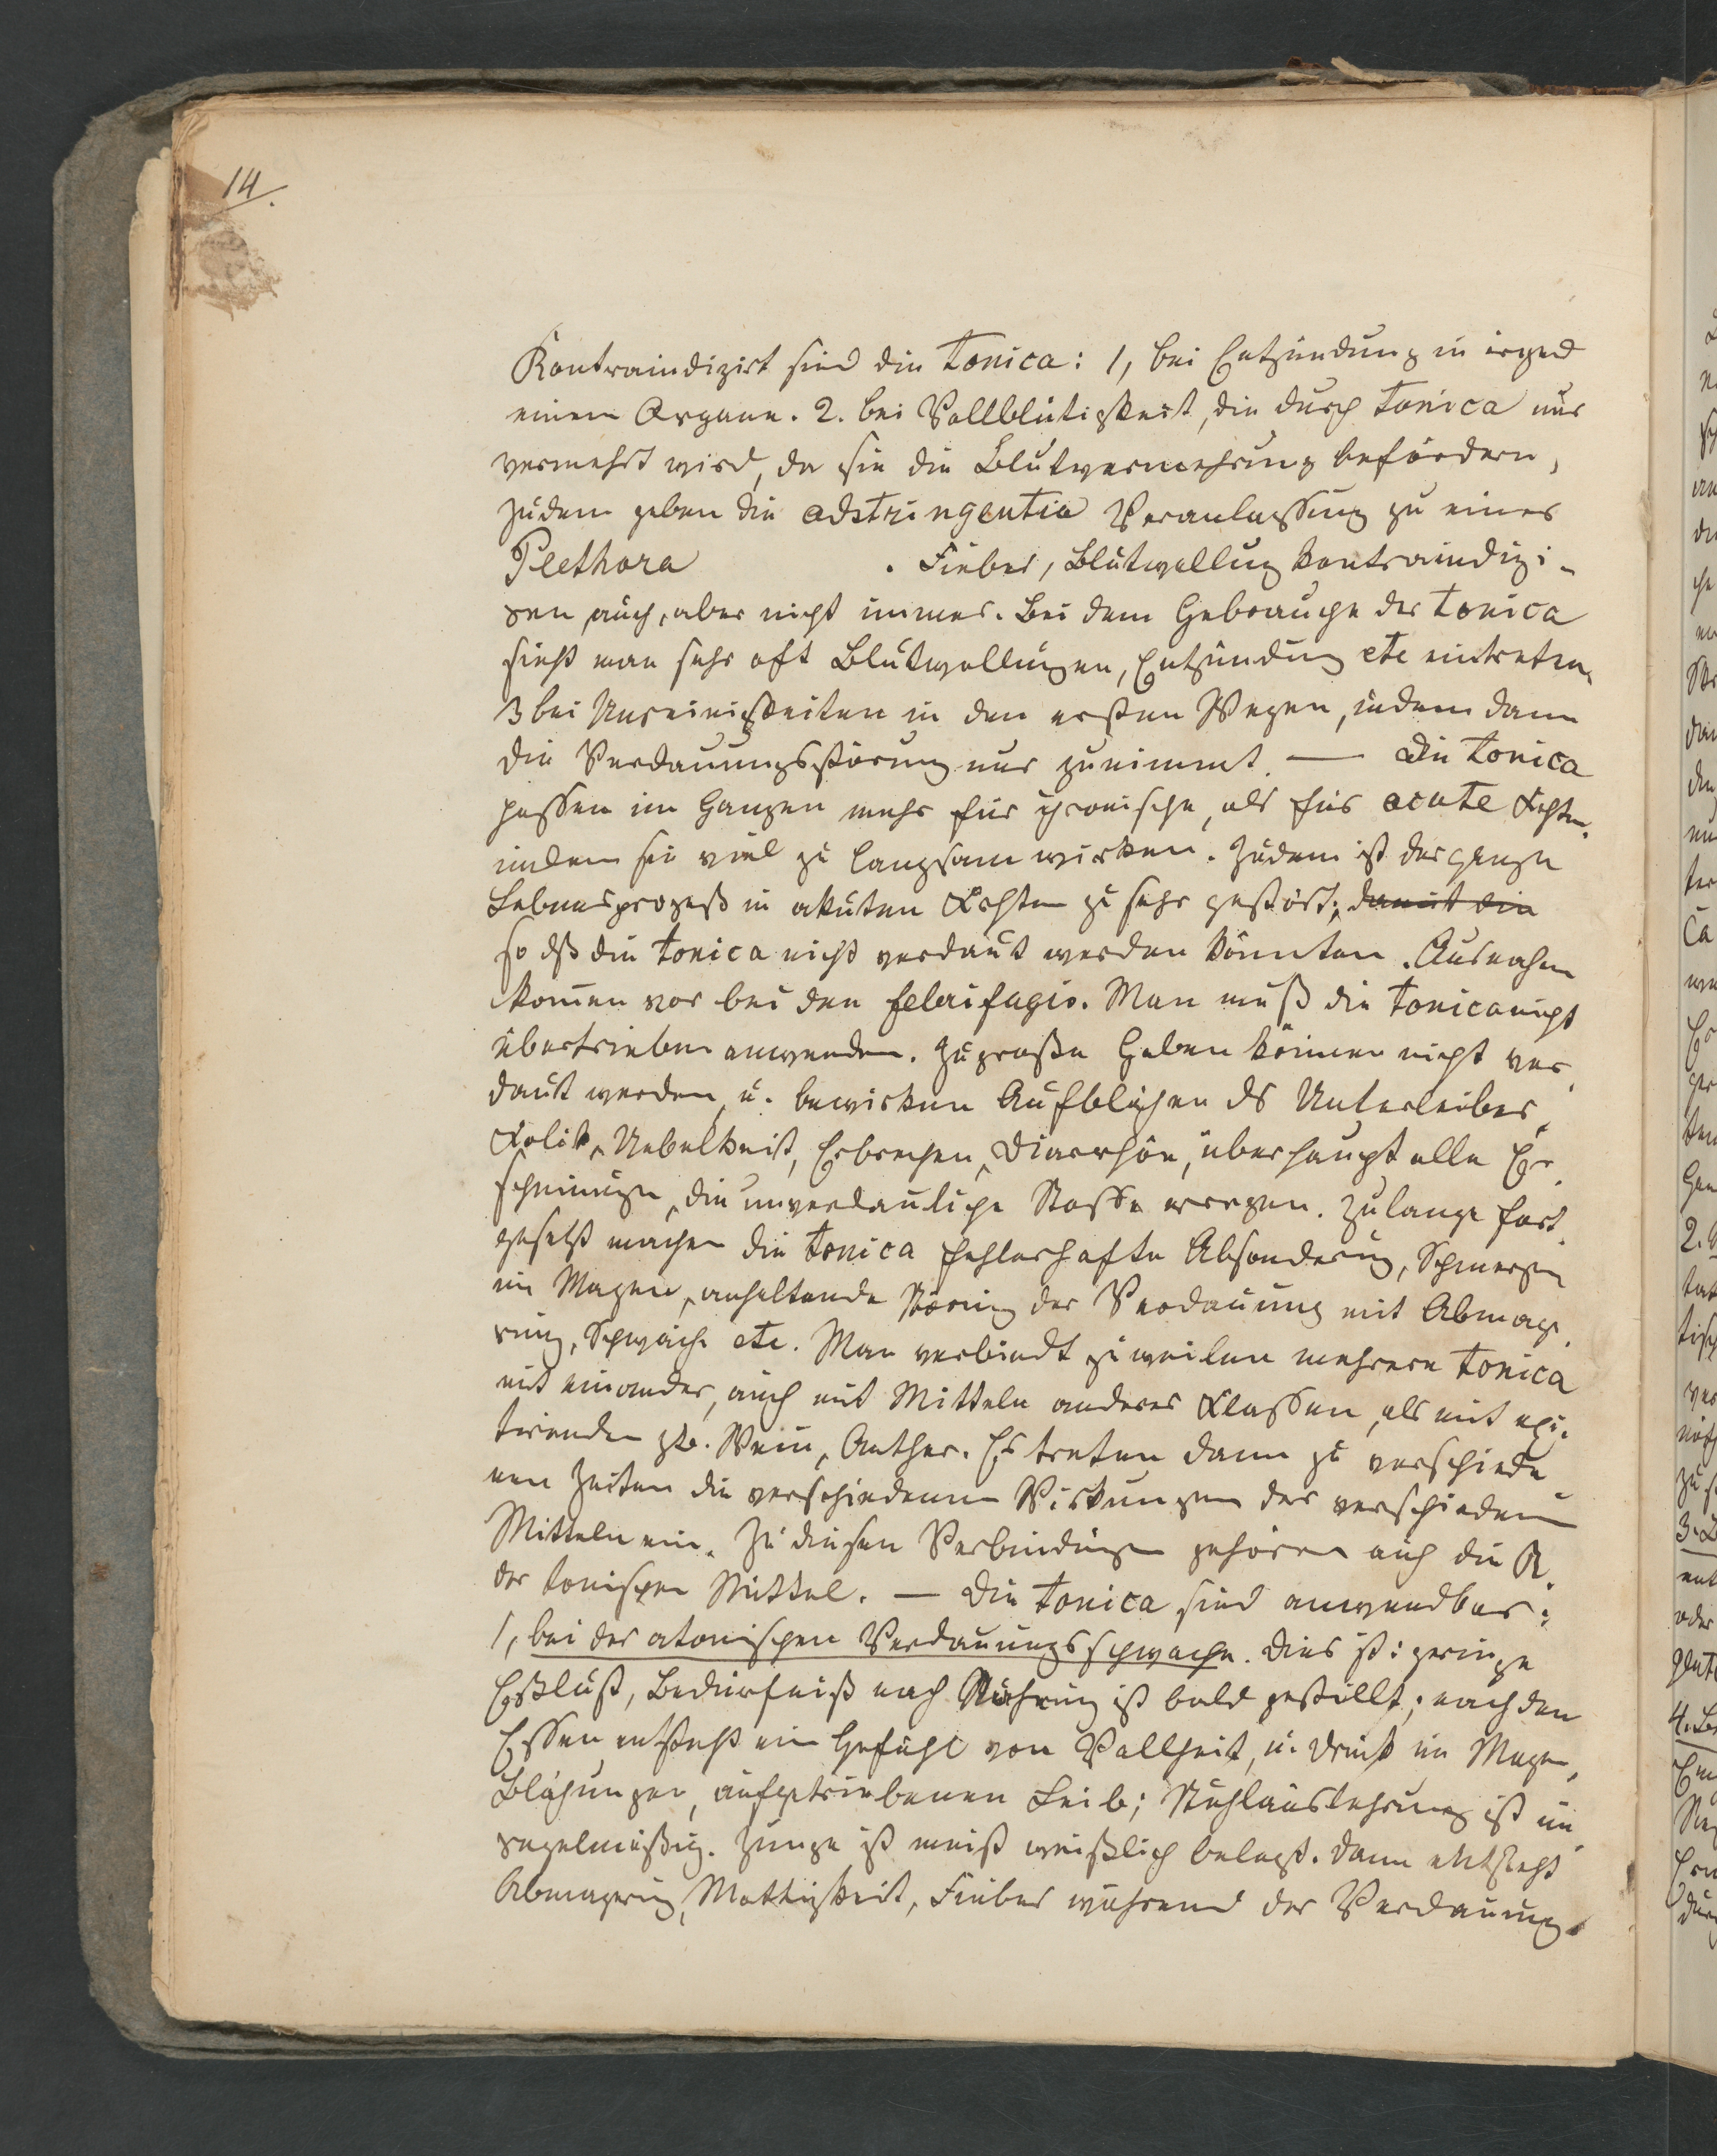 14.
Kontraindizirt sind die Tonica: 1, bei Entzündung in irgend
einem Organe. 2. bei Vollblütigkeit, die durch Tonica nur
vermehrt wird, da sie die Blutvermehrung befördern,
zudem geben die adstringentia Veranlassung zu einer
Plethora . Fieber, Blutwallung kontraindizi-
ren auch, aber nicht immer. Bei dem Gebrauche der tonica
sieht man sehr oft Blutwallungen, Entzündung etc eintreten.
3 bei Unreinigkeiten in den ersten Wegen, indem dann
die Verdauungsstörung nur zunimmt. — Die tonica
passen im Ganzen mehr für chronische, als für acute
indem sie viel zu langsam wirken. Zudem ist der ganze
Lebensprozeß in akuten zu sehr gestört, damit die
so dß die tonica nicht verdaut werden könnten. Ausnahm
kom̄en vor bei den Man muß die tonica nicht
übertrieben anwenden. Zu große Gaben können nicht ver-
daut werden, u. bewirken Aufblähen ds Unterleibes,
Kolik, Uebelkeit, Erbrechen, Diarrhöe, überhaupt alle Er-
scheinungen, die unverdauliche Stoffe erregen. Zu lange fort-
gesetzt machen die tonica fehlerhafte Absonderung, Schmerzen
im Magen, anhaltende Störung der Verdauung mit Abmage-
rung, Schwäche etc. Man verbindt zuweilen mehrere tonica
mit einander, auch mit Mitteln anderer Klassen, als mit exci-
tirenden zb. Wein, Aether. Es treten dann zu verschiede-
nen Zeiten die verschiedenen Wirkungen der verschiedenen
Mitteln ein. Zu diesen Verbindungen gehören auch die
der tonischen Mittel. — Die tonica sind anwendbar:
1, bei der atonischen Verdauungsschwäche. Dies ist: geringe
Eßlust, Bedürfniß nach Nahrung ist bald gestillt; nach dem
Essen entsteht ein Gefühl von Vollheit, u. Druck im Magen,
Blähungen, aufgetriebenen Leib; Stuhlausleerung ist un-
regelmäßig. Zunge ist meist weißlich belegt. Dann entsteht
Abmagerung, Mattigkeit, Fieber während der Verdauung.